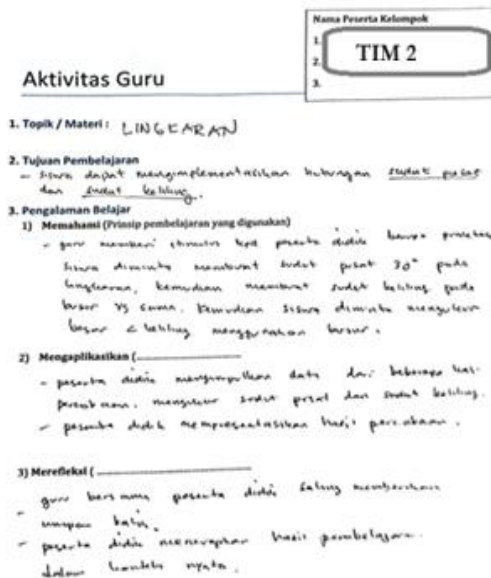 Nama Peserta Kelompok
1.
2.
3.
TIM 2
Aktivitas Guru
1. Topik / Materi : LINGKARAN
2. Tujuan Pembelajaran
- siswa dapat mengimplementasikan hubungan sudut pusat
dan sudut keliling.
3. Pengalaman Belajar
1) Memahami (Prinsip pembelajaran yang digunakan)
- guru memberi stimulus kpd peserta didik berupa
siswa diminta membuat sudut pusat 30° pada
lingkaran, kemudian membuat sudut keliling pada
busur yg sama. Kemudian siswa diminta mengukur
besar < keliling menggunakan busur.
2) Mengaplikasikan (
- peserta didik mengumpulkan data dari beberapa kali
percobaan, mengukur sudut pusat dan sudut keliling.
- peserta didik mempresentasikan hasil percobaan.
3) Merefleksi (
- guru bersama peserta didik saling memberikan
umpan balik.
- peserta didik menerapkan hasil pembelajaran
dalam konteks nyata.